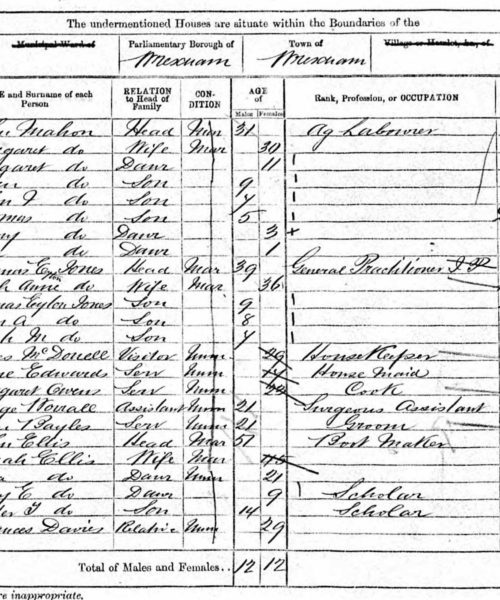 The undermentioned Houses are situate within the Boundaries of the
Municipal Ward of Parliamentary Borough of Town of Village or Hamlet, &c., of
Wrexham Wrexham
E and Surname of each Person RELATION to Head of Family CON-DITION AGE of Males Females Rank, Profession, or OCCUPATION
Mahon Head 31 Ag Labourer
garet do Wife Mar 30
garet do Daur 11
do Son 9
do Son
mas do Son 5
do Daur 3
do Daur 1
mas Jones Head Mar 39 General Practitioner
Anne do Wife Mar 36
mas Eyton Jones Son 9
A do Son 8
M do Son
McDonell Visitor Unm 29 House Keeper
Edwards Serv Unm House Maid
garet Owens Serv Unm Cook
ge Worrall Assistant Unm 21 Surgeons Assistant
Bayles Serv Unm 21 Groom
Ellis Head Mar 51 Boot Maker
ah Ellis Wife Mar 45
do Daur Unm 21
E do Daur 9 Scholar
do Son 14 Scholar
nces Davies Relative Unm 29
Total of Males and Females.. 12 12
re inappropriate.